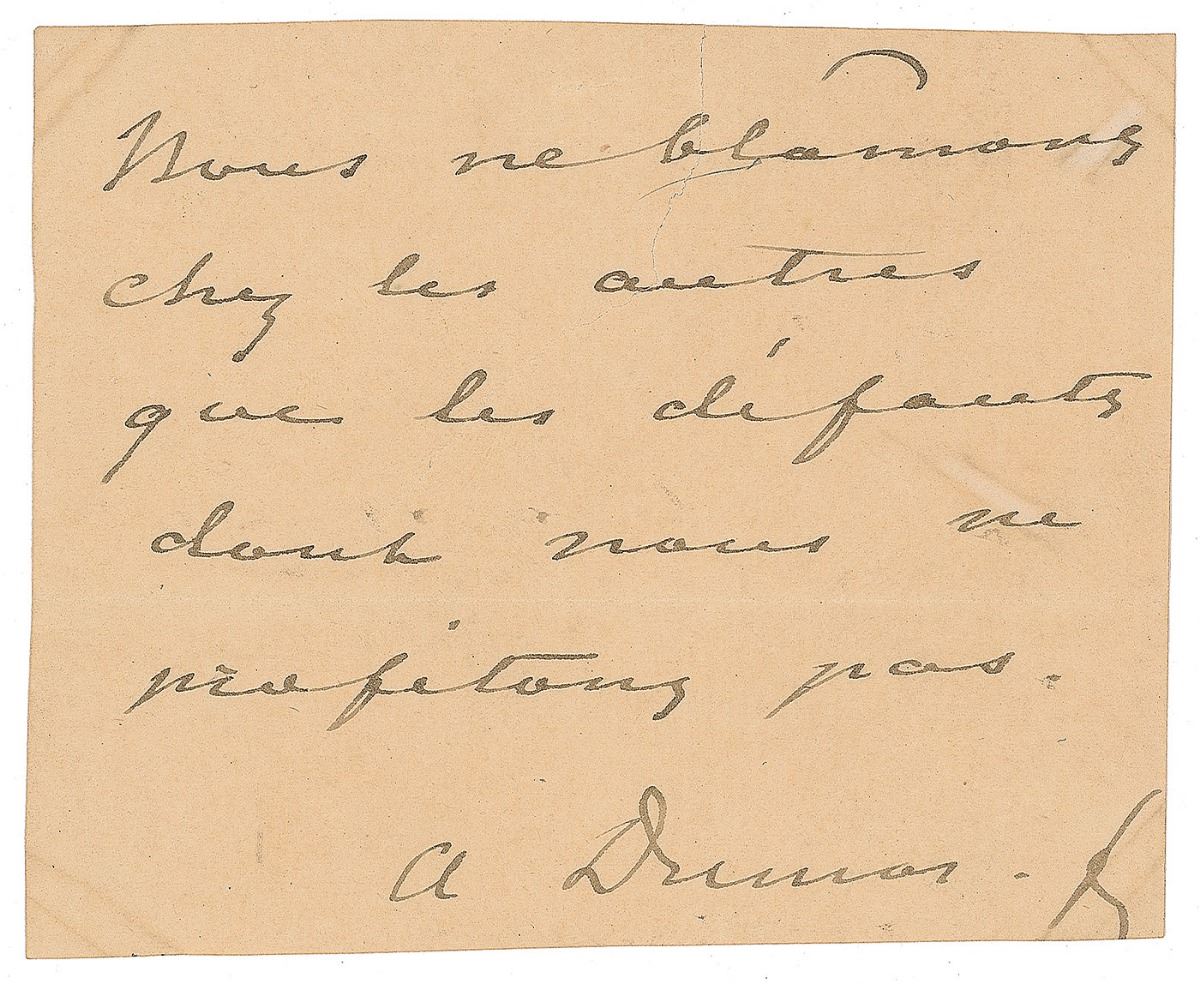 Nous ne blâmons
chez les autres
que les défauts
dont nous ne
profitons pas.
A Dumas. f